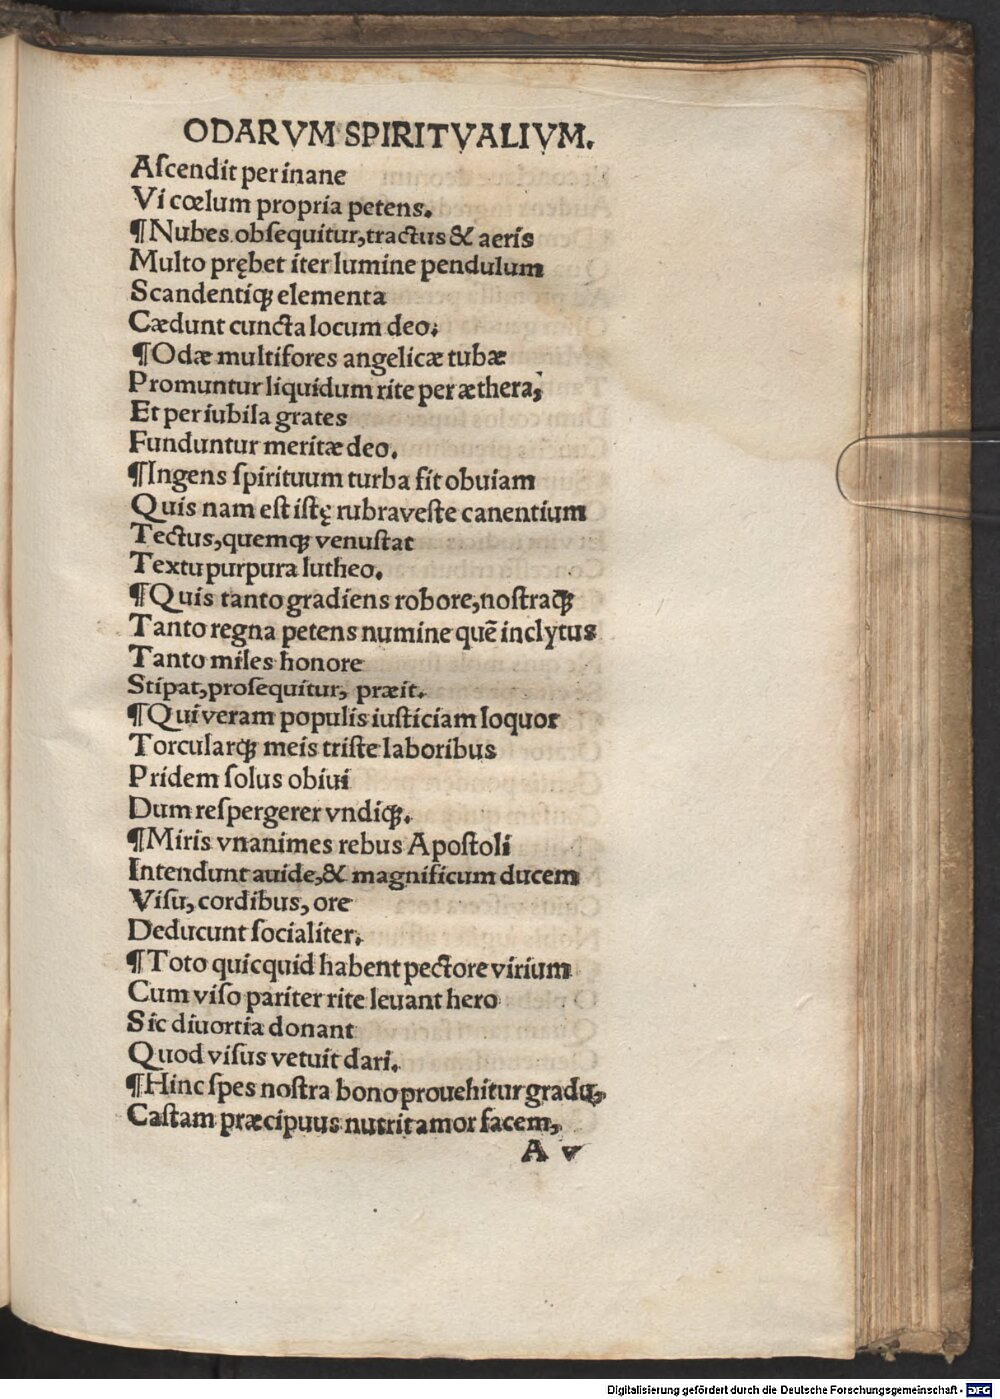 ODARVM SPIRITVALIVM.
Aſcendit per inane
Vi cœlum propria petens.
¶Nubes obſequitur,tractus & aeris
Multo prębet iter lumine pendulum
Scandentiꝗ elementa
Cædunt cuncta locum deo.
¶Odæ multifores angelicæ tubæ
Promuntur liquidum rite per æthera,
Et per iubila grates
Funduntur meritæ deo.
¶Ingens ſpirituum turba fit obuiam
Quis nam eſt iſtę rubra veſte canentium
Tectus,quemꝗ venuſtat
Textu purpura lutheo.
¶Quis tanto gradiens robore,noſtraꝗ
Tanto regna petens numine quē inclytus
Tanto miles honore
Stipat,proſequitur, præit.
¶Qui veram populis iuſticiam loquor
Torcularꝗ meis triſte laboribus
Pridem ſolus obiui
Dum reſpergerer vndiꝗ.
¶Miris vnanimes rebus Apoſtoli
Intendunt auide,& magnificum ducem
Viſu, cordibus, ore
Deducunt ſocialiter.
¶Toto quicquid habent pectore virium
Cum viſo pariter rite leuant hero
Sic diuortia donant
Quod viſus vetuit dari.
¶Hinc ſpes noſtra bono prouehitur gradu,
Caſtam præcipuus nutrit amor facem,
A v
Digitalisierung gefördert durch die Deutsche Forschungsgemeinschaft - DFG